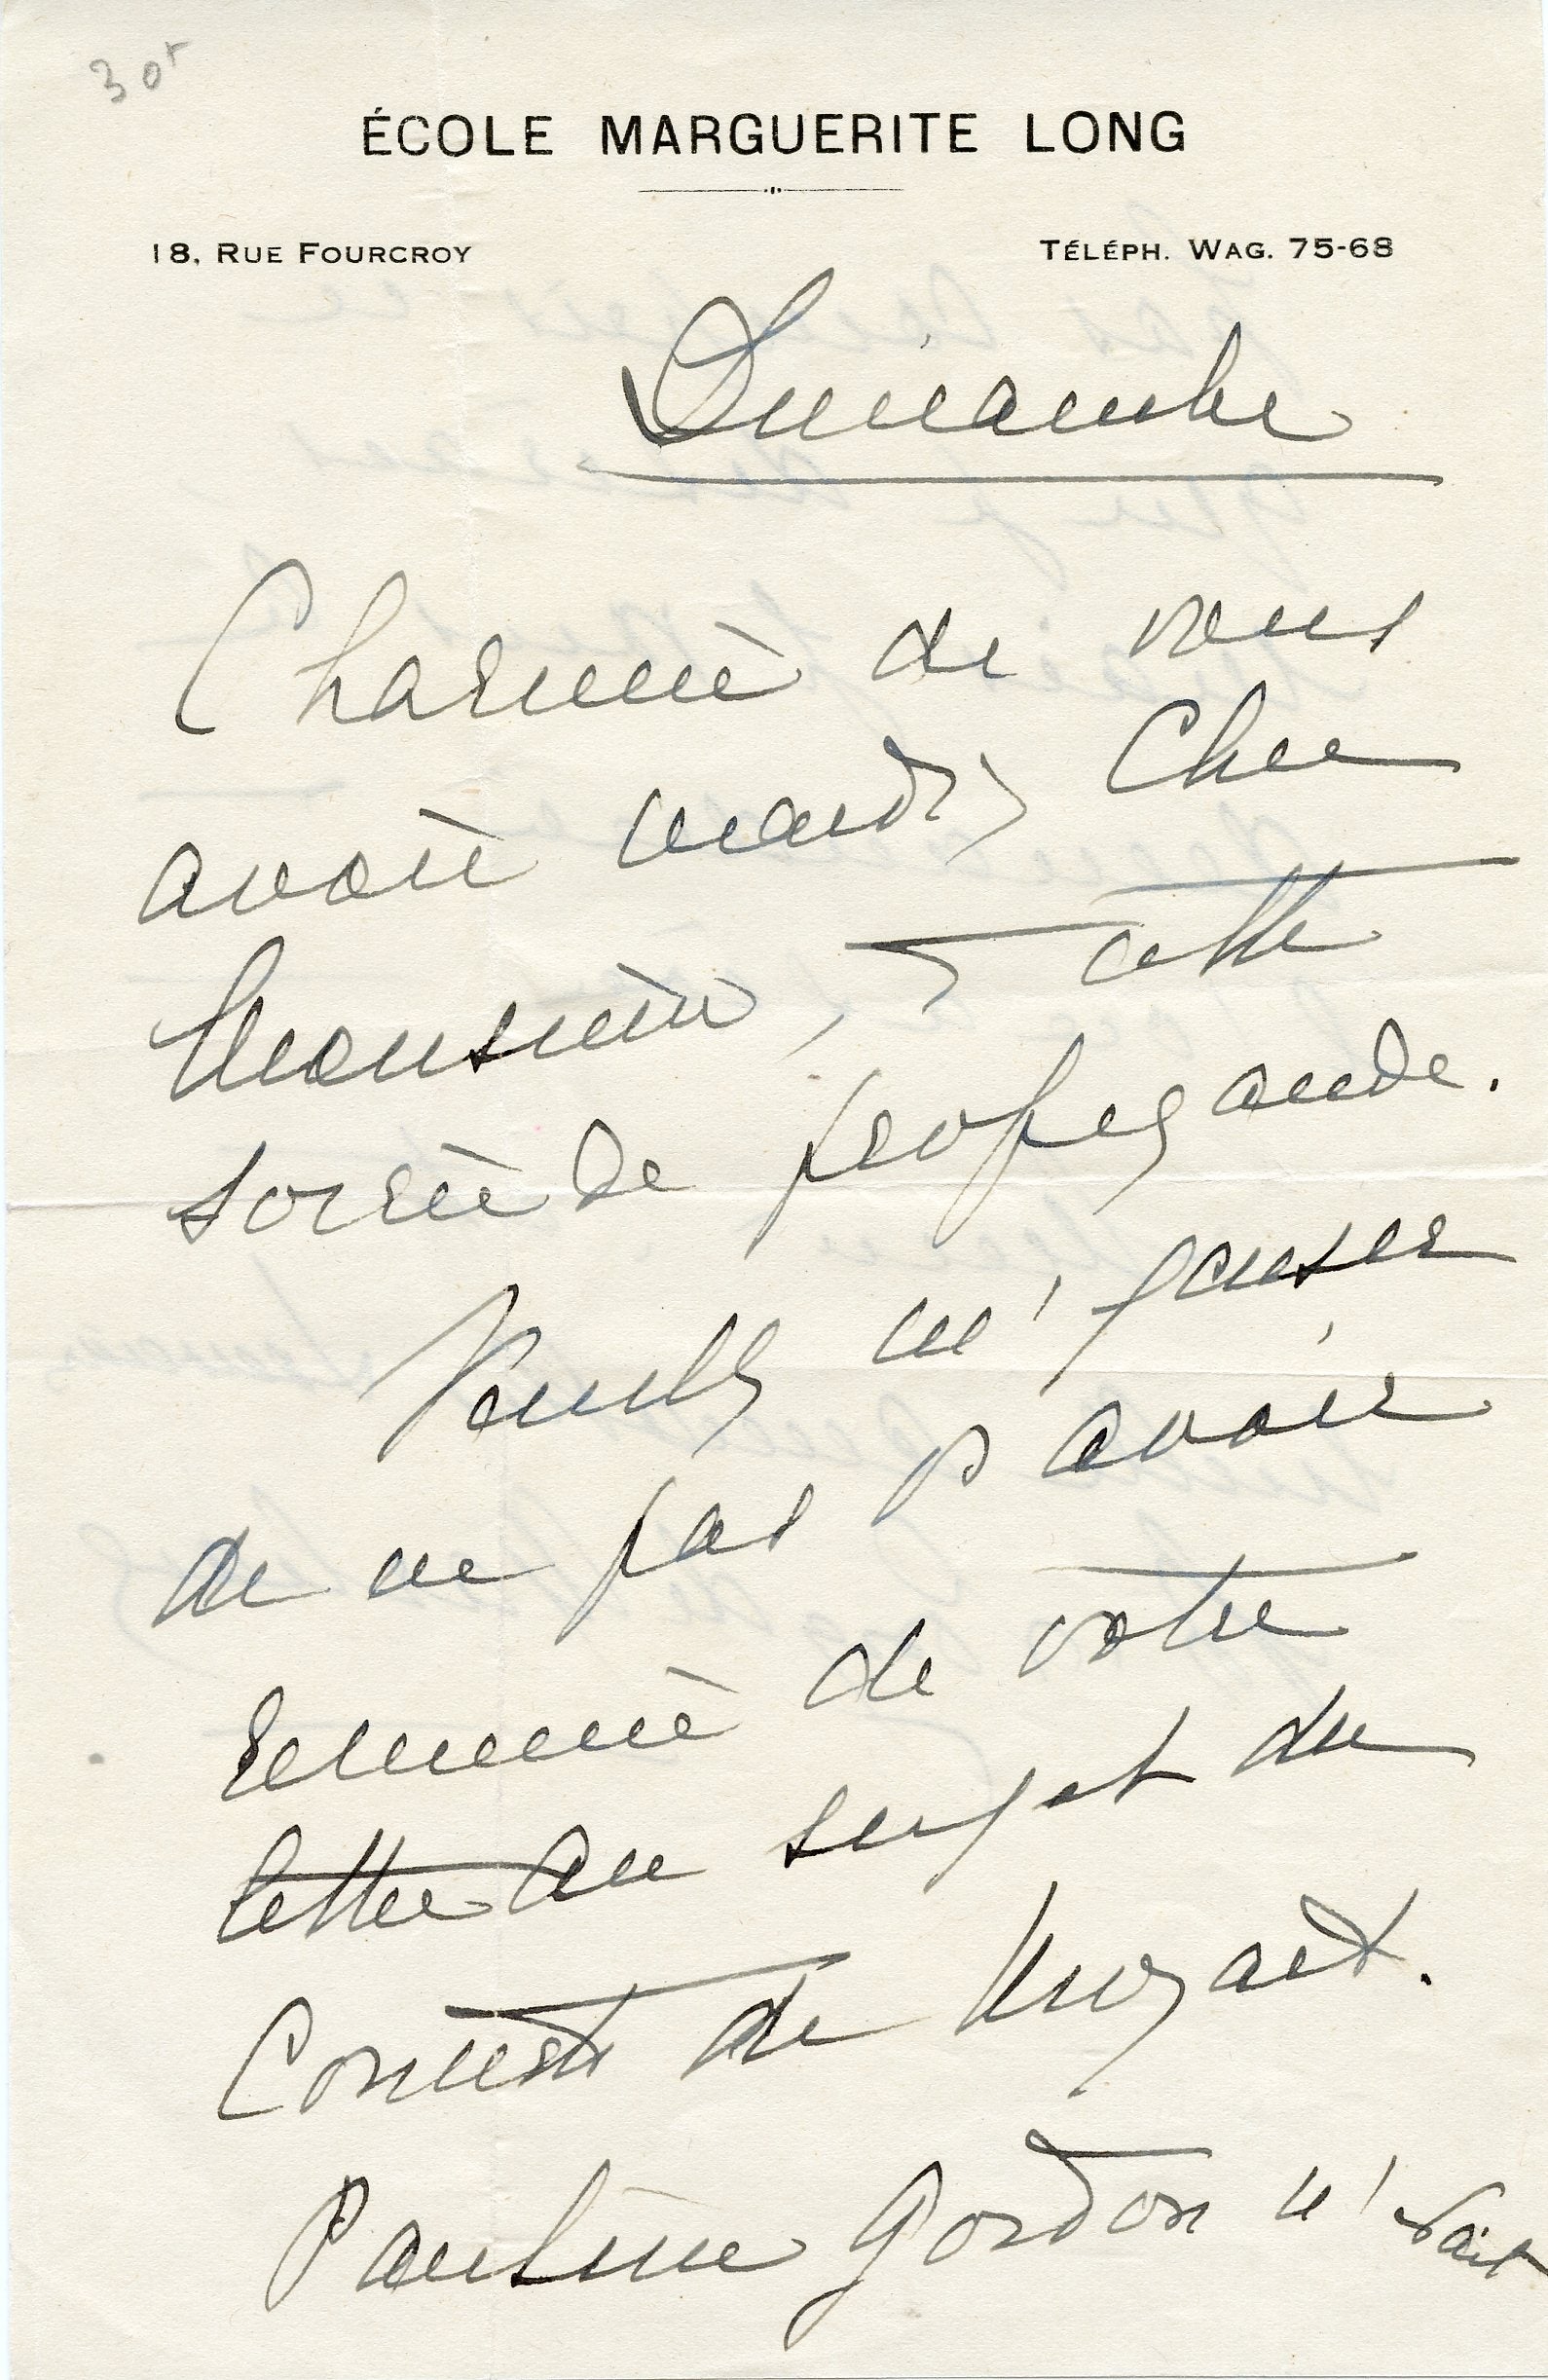 30f
ÉCOLE MARGUERITE LONG
18, RUE FOURCROY TÉLÉPH. WAG. 75-68
Dimanche
Charmée de vous
avoir mardi, Cher
Monsieur, à cette
soirée de propagande.
Veuillez m'excuser
de ne pas avoir
remercié de votre
lettre au sujet du
Concerto de Mozart.
Pauline Gordon n'était